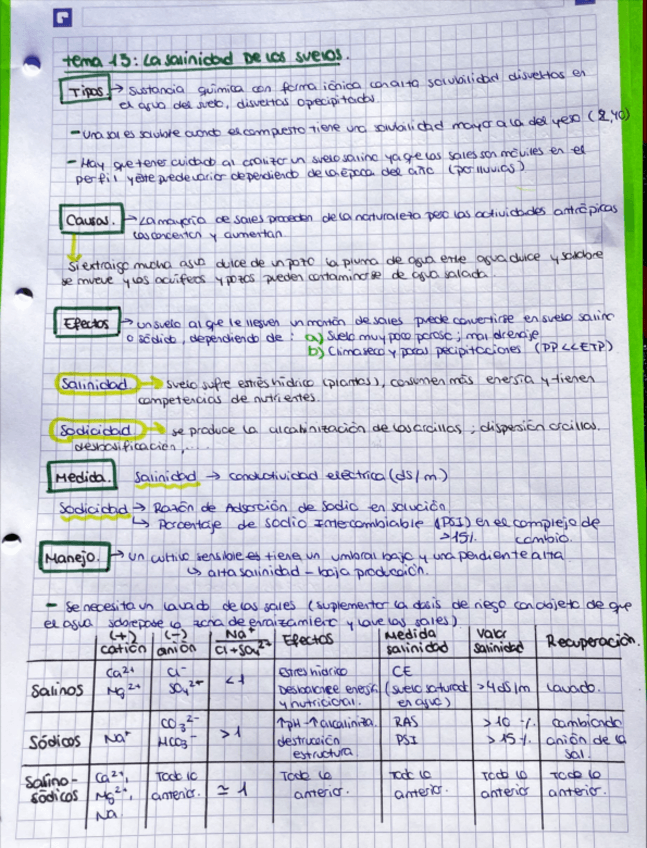 Tema 13: La salinidad De los suelos.
Tipos. → Sustancia química con forma iónica con alta solubilidad disueltos en
el agua del suelo, disueltos o precipitados.
- Una sal es soluble cuando el compuesto tiene una solubilidad mayor a la del yeso (2,40)
- Hay que tener cuidado al analizar un suelo salino ya que las sales son móviles en el
perfil y éste puede variar dependiendo de la época del año (por lluvias)
Causas. → La mayoría de sales proceden de la naturaleza pero las actividades antrópicas
las concentran y aumentan.
Si extraigo mucha agua dulce de un pozo la pluma de agua entre agua dulce y salobre
se mueve y los acuíferos y pozos pueden contaminarse de agua salada.
Efectos → un suelo al que le lleguen un montón de sales puede convertirse en suelo salino
o sódico, dependiendo de: a) Suelo muy poco poroso; mal drenaje
b) Clima seco y pocas pecipitaciones (PP<<ETP)
Salinidad → suelo sufre estrés hídrico (plantas), consumen más energía y tienen
competencias de nutrientes.
Sodicidad → se produce la alcalinización de las arcillas; dispersión arcillas.
desbasificación,...
Medida. Salinidad → conductividad eléctrica (dS/m)
Sodicidad → Razón de Adsorción de Sodio en solución
↳ Porcentaje de sodio Intercambiable (PSI) en el complejo de
>15%. cambio.
Manejo. → un cultivo sensible es tiene un umbral bajo y una pendiente alta
↳ alta salinidad - baja producción.
- Se necesita un lavado de las sales (suplementar la dosis de riego con objeto de que
el agua sobrepase la zona de enraizamiento y lave las sales)
(+) catión (-) anión Na⁺/Cl+SO₄²⁻ Efectos Medida salinidad Valor salinidad Recuperación.
Salinos Ca²⁺ Mg²⁺ Cl⁻ SO₄²⁻ <1 Estrés hídrico Desbalance energ. y nutricional. CE (suelo saturado en agua) >4dS/m Lavado.
Sódicos Na⁺ CO₃²⁻ HCO₃⁻ >1 ↑pH-↑alcaliniza. destrucción estructura. RAS PSI >10 % >15% cambiando anión de la sal.
Salino-sódicos Ca²⁺, Mg²⁺, Na. Todo lo anterior. ≃1 Todo lo anterior. Todo lo anterior. Todo lo anterior Todo lo anterior.